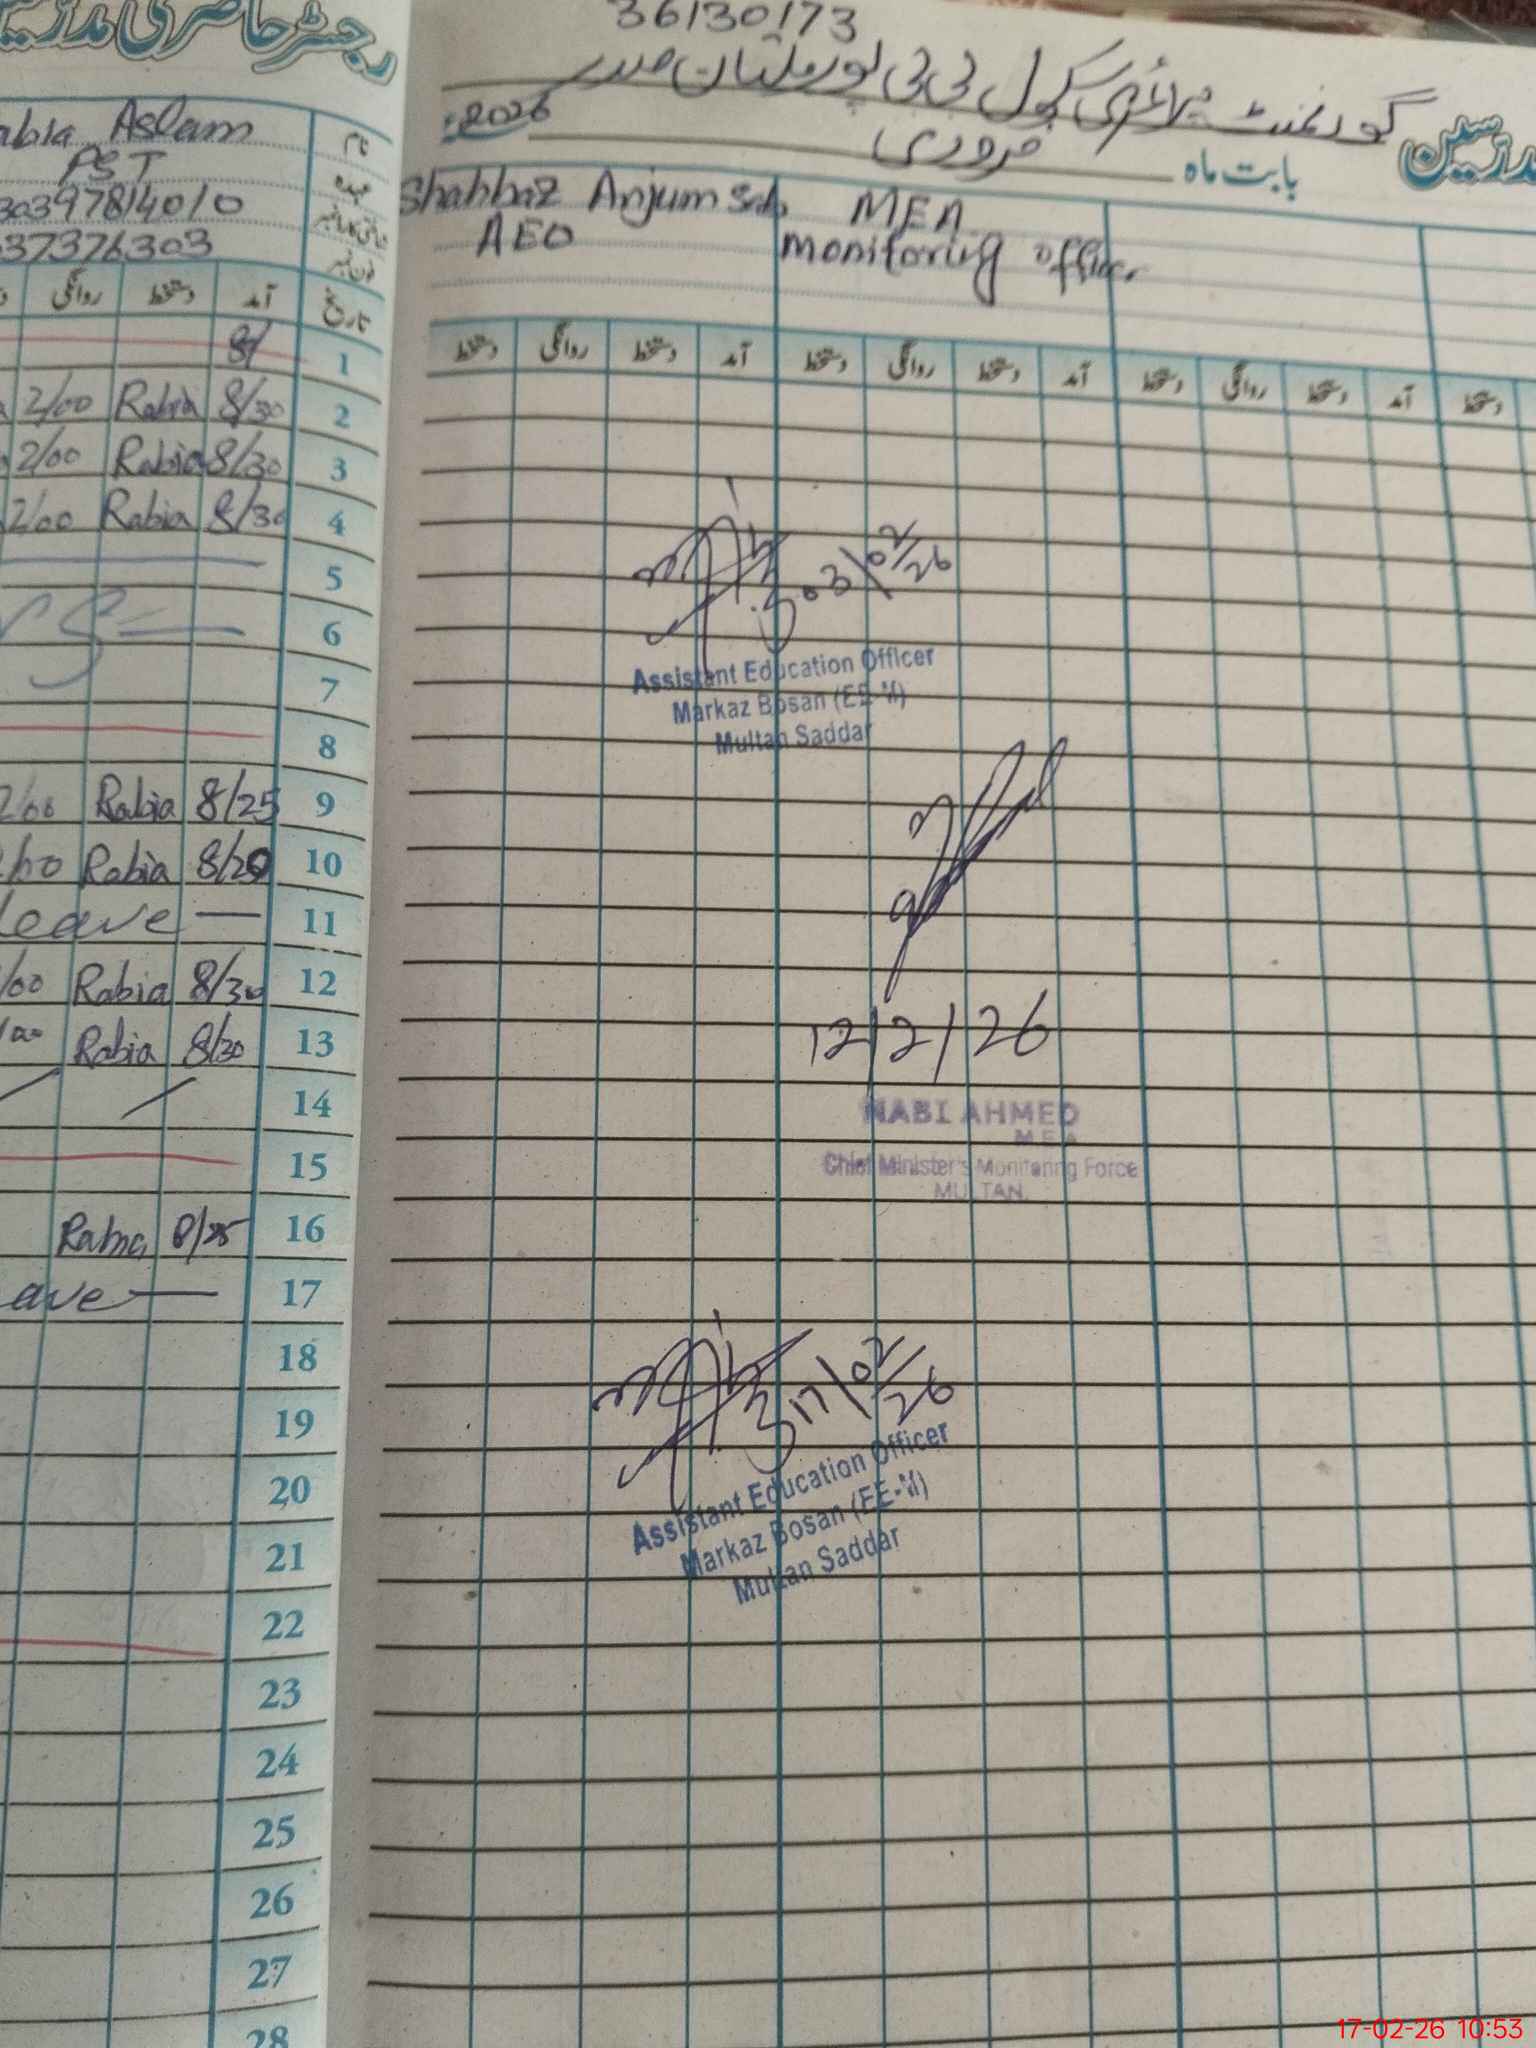 رجسٹر حاضری مدرسین
abia Aslam
نام
PST
عہدہ
30397814010
37376303
فون نمبر
روانگی دستخط آمد تاریخ
8/ 1
2/00 Rabia 8/30 2
2/00 Rabia 8/30 3
2/00 Rabia 8/30 4
5
6
7
8
2/00 Rabia 8/25 9
Rabia 8/20 10
leave — 11
/00 Rabia 8/30 12
/00 Rabia 8/30 13
14
15
Rabia 8/25 16
ave — 17
18
19
20
21
22
23
24
25
26
27
28
36130173
گورنمنٹ پرائمری سکول ٹی ٹی پور ملتان صدر
مدرسین
بابت ماہ فروری 2026
Shahbaz Anjum Sab
AEO
MEA
monitoring officer
دستخط روانگی دستخط آمد دستخط روانگی دستخط آمد دستخط روانگی دستخط آمد دستخط
03/02/26
Assistant Education Officer
Markaz Bosan (EE-M)
Multan Saddar
12/2/26
NABI AHMED
MEA
Chief Minister's Monitoring Force
MULTAN.
17/02/26
Assistant Education Officer
Markaz Bosan (EE-M)
Multan Saddar
17-02-26 10:53